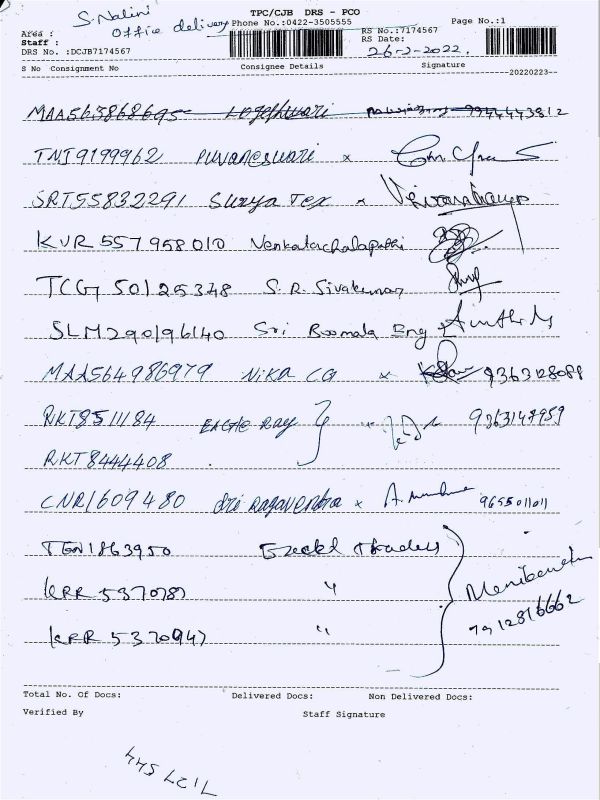 S. Nalini
Office delivery
TPC/CJB DRS - PCO
Phone No.:0422-3505555
Page No.:1
Area :
Staff :
DRS No. :DCJB7174567
RS No.:7174567
RS Date:
26-2-2022.
S No Consignment No Consignee Details Signature
20220223
MAA565868695 Logeshwari 9944443812
TNI9199962 Puvaneswari x
SRT55832291 Surya Tex x
KVR 557958010 Venkatachalapathi
TCG 50125348 S. R. Sivakumar
SLM290196140 Sri Boomala Eng
MAA564986979 Nika CG x 9363128088
RKT8511184 Eagle Ray 9363147959
RKT8444408
CNR1609480 Sri Ragavendra x 9655011011
TEN1863950 Ezeckl Traders
KRR 5370787 "
KRR 5370947 "
7912816662
Total No. Of Docs: Delivered Docs: Non Delivered Docs:
Verified By Staff Signature
7127544